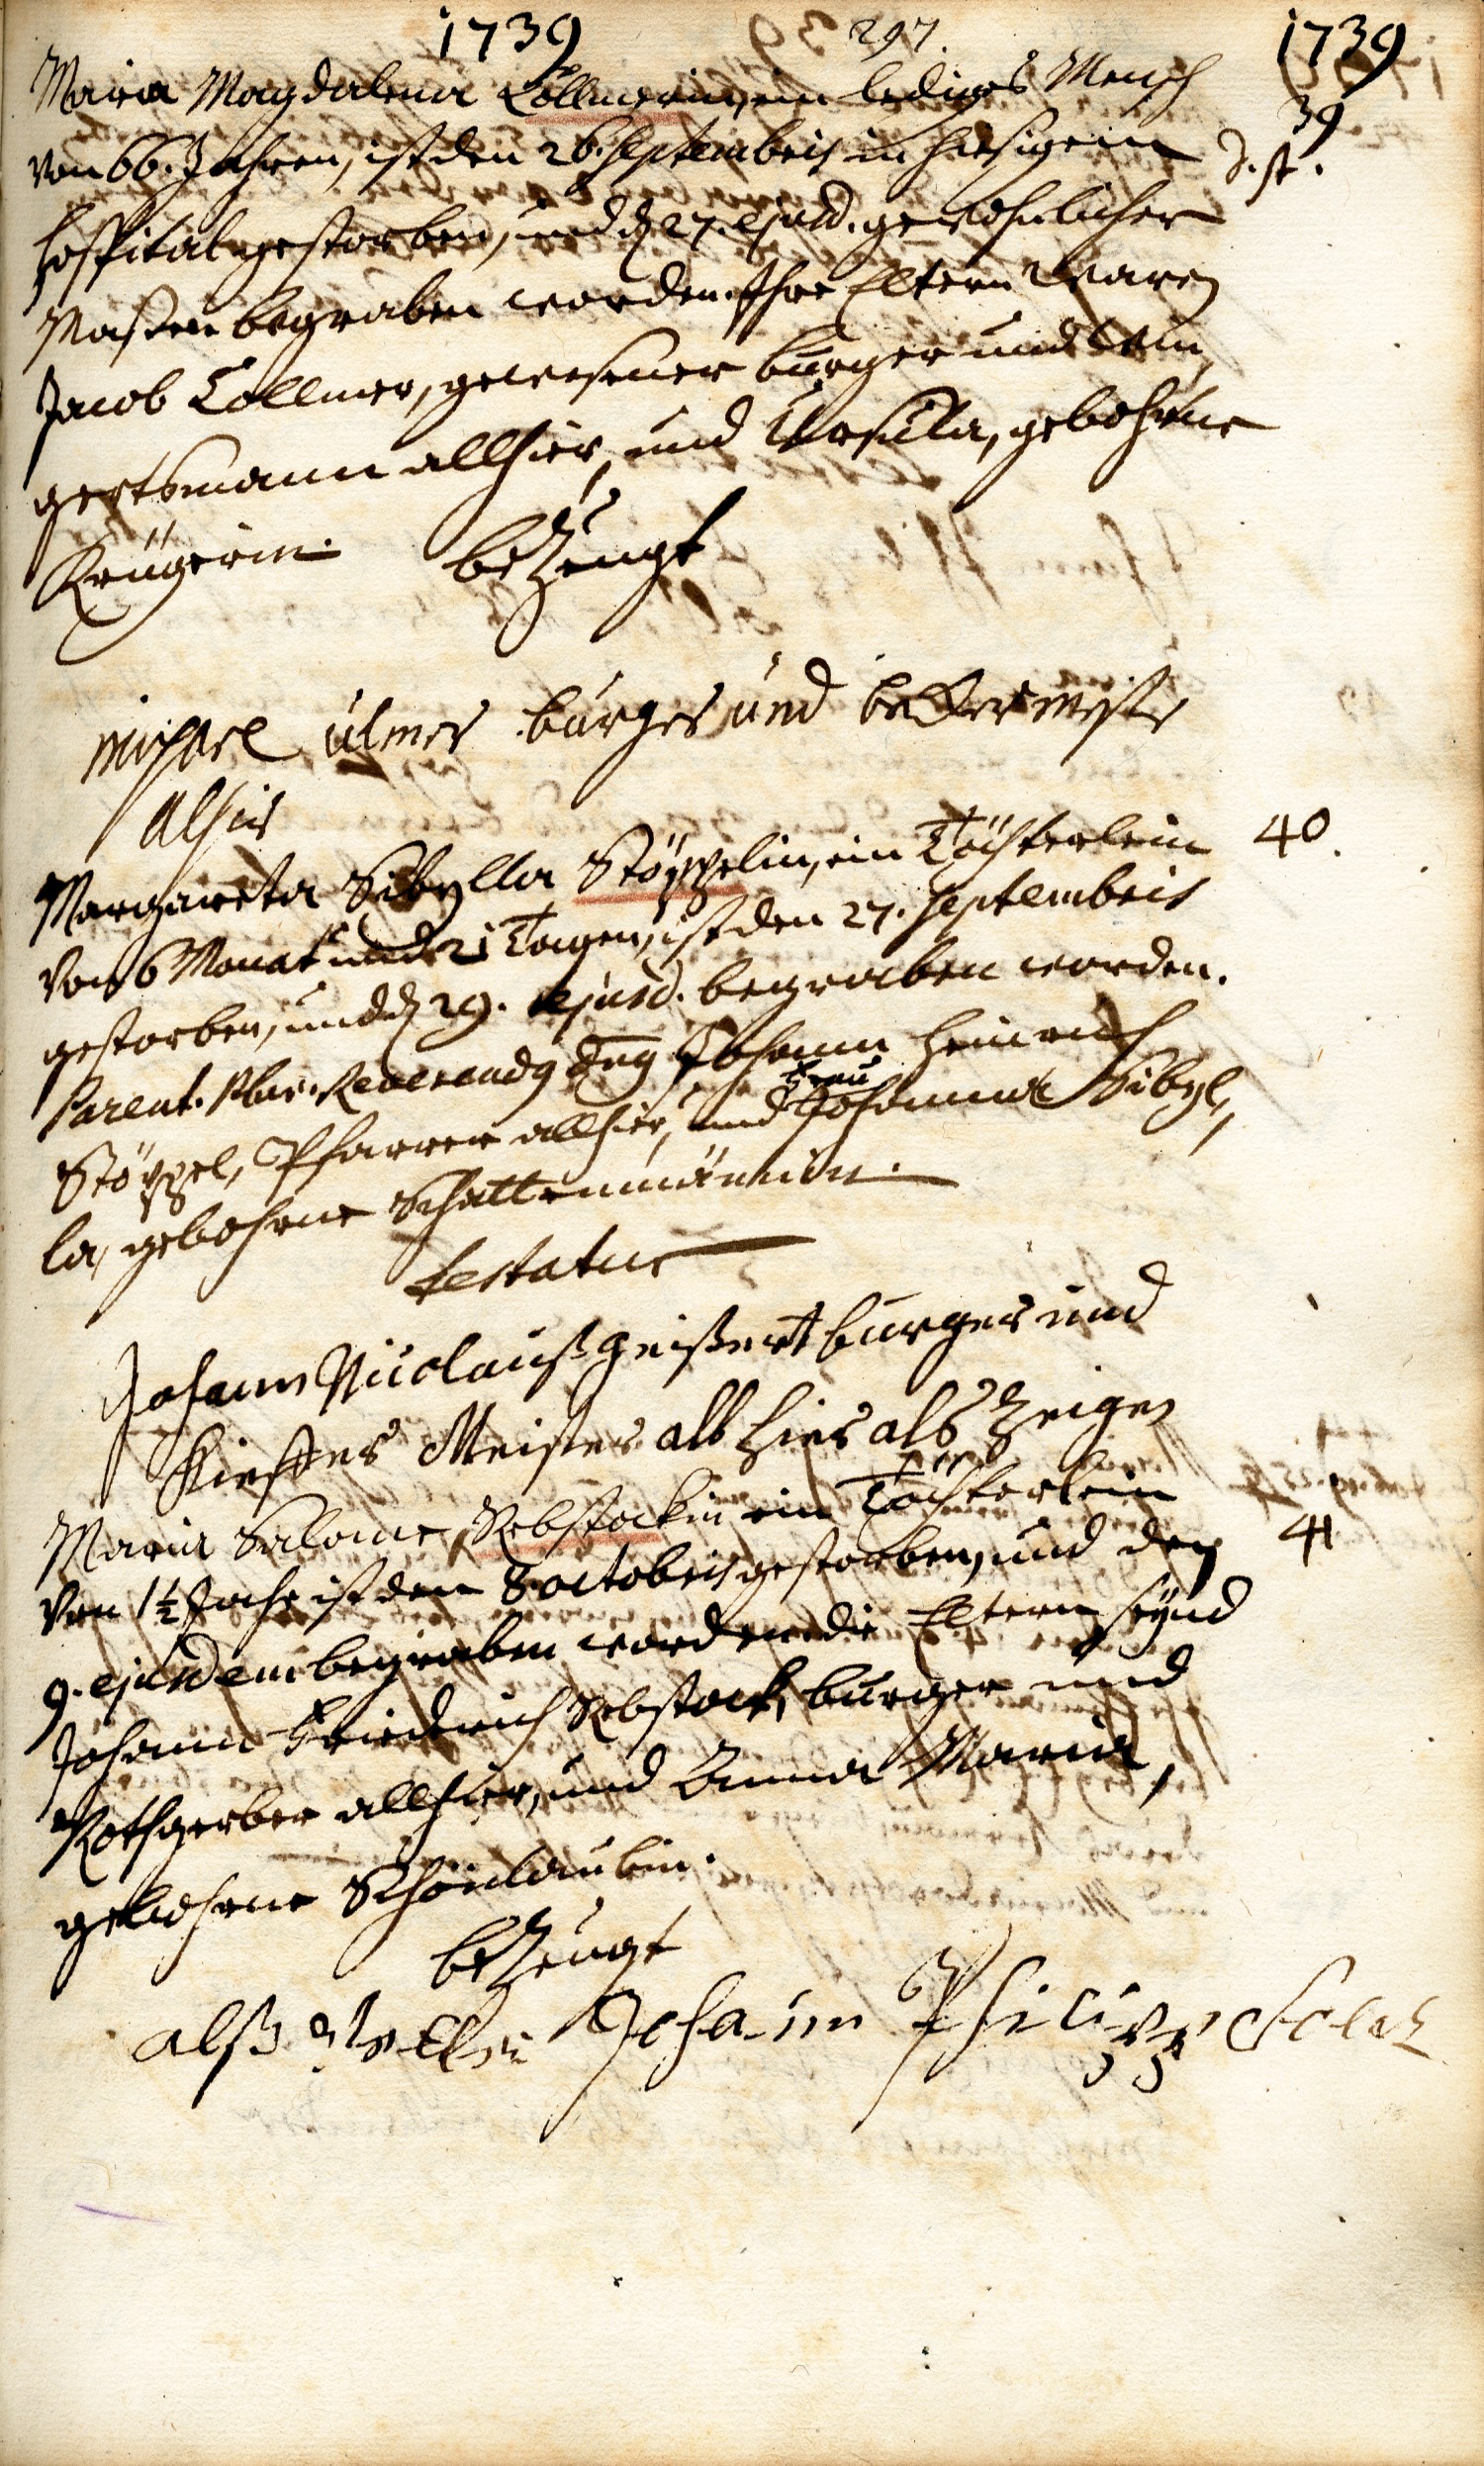 1739 297. 1739
Maria Magdalena Collmerin, ein lediges Mensch 39
von 66. Jahren, ist den 26. Septembris in hiesigem d. st.
Hospital gestorben, und d. 27. ejusd. gewohnlicher
Maßen begraben worden. Ihre Eltern waren
Jacob Collmer, gewesener burger und Wein,
gertsmann allhier, und Ursula, gebohrne
Krügerin. bezeugt
Michael Ulmer burger und becker meister
alhier
Margareta Sibylla Stöppelin, ein Töchterlein 40.
von 6 Monat und 21 Tagen, ist den 27. Septembris
gestorben, und d. 29. ejusd. begraben worden.
Parent. Plur. Reverendg Dng Johann Heinrich
Stöppel, Pfarrer allhier, und Frau Johanna Sibyl,
la, gebohrne Schattenmännin.
testatur
Johann Nicolauß Geißert burger und
Kieffer Meister all hier als Zeigen
Maria Salome Rebstockin ein Töchterlein
von 1½ Jahr ist den 8 octobris gestorben, und den 41
9. ejusdem begraben worden. die Eltern seynd
Johann Friederich Rebstock, burger und
Rothgerber allhier, und Anna Maria,
gebohrne Schönlaubin.
bezeugt
alß Johann Philipp